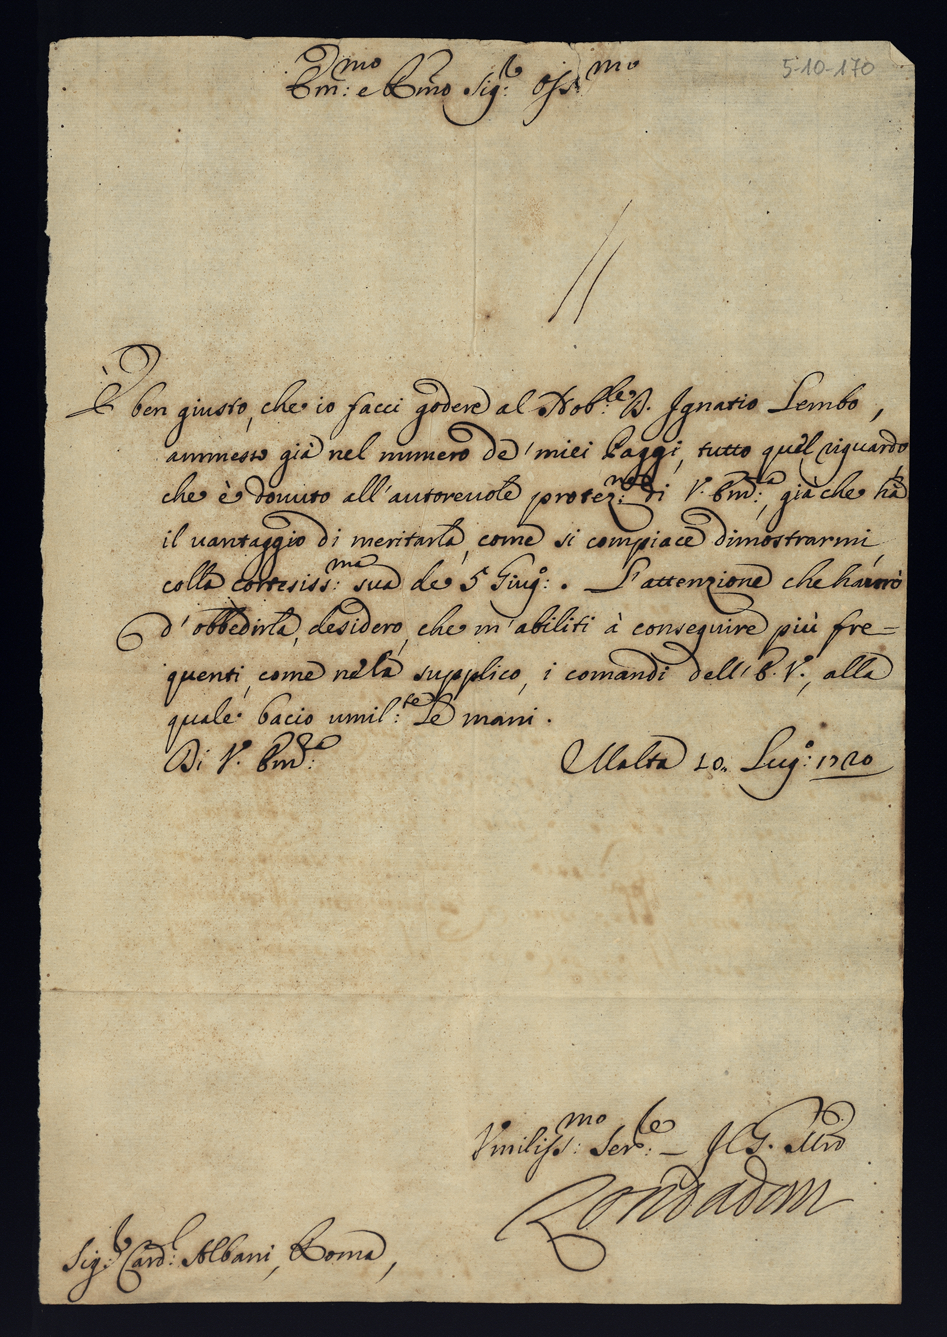 5-10-170
Em:mo e Rmo Sig:r Oss:mo
È ben giusto, che io facci godere al Nob:le D. Ignatio Lembo,
ammesso già nel numero de' miei Paggi, tutto quel riguardo
che è dovuto all'autorevole protez:ne di V. Em:a, già che hà
il vantaggio di meritarla, come si compiace dimostrarmi
colla cortesiss:ma sua de 5 Giug:o. L'attenzione che haverò
d'obbedirla, desidero, che m'abiliti à conseguire più fre=
quenti, come nè la supplico, i comandi dell'E.V., alla
quale bacio umil:te le mani.
Di V. Em:za Malta 10. Lug:o 1720
Umiliss:mo Ser:le - Il G. Mro
Zondadari
Sig:r Card:l Albani, Roma,